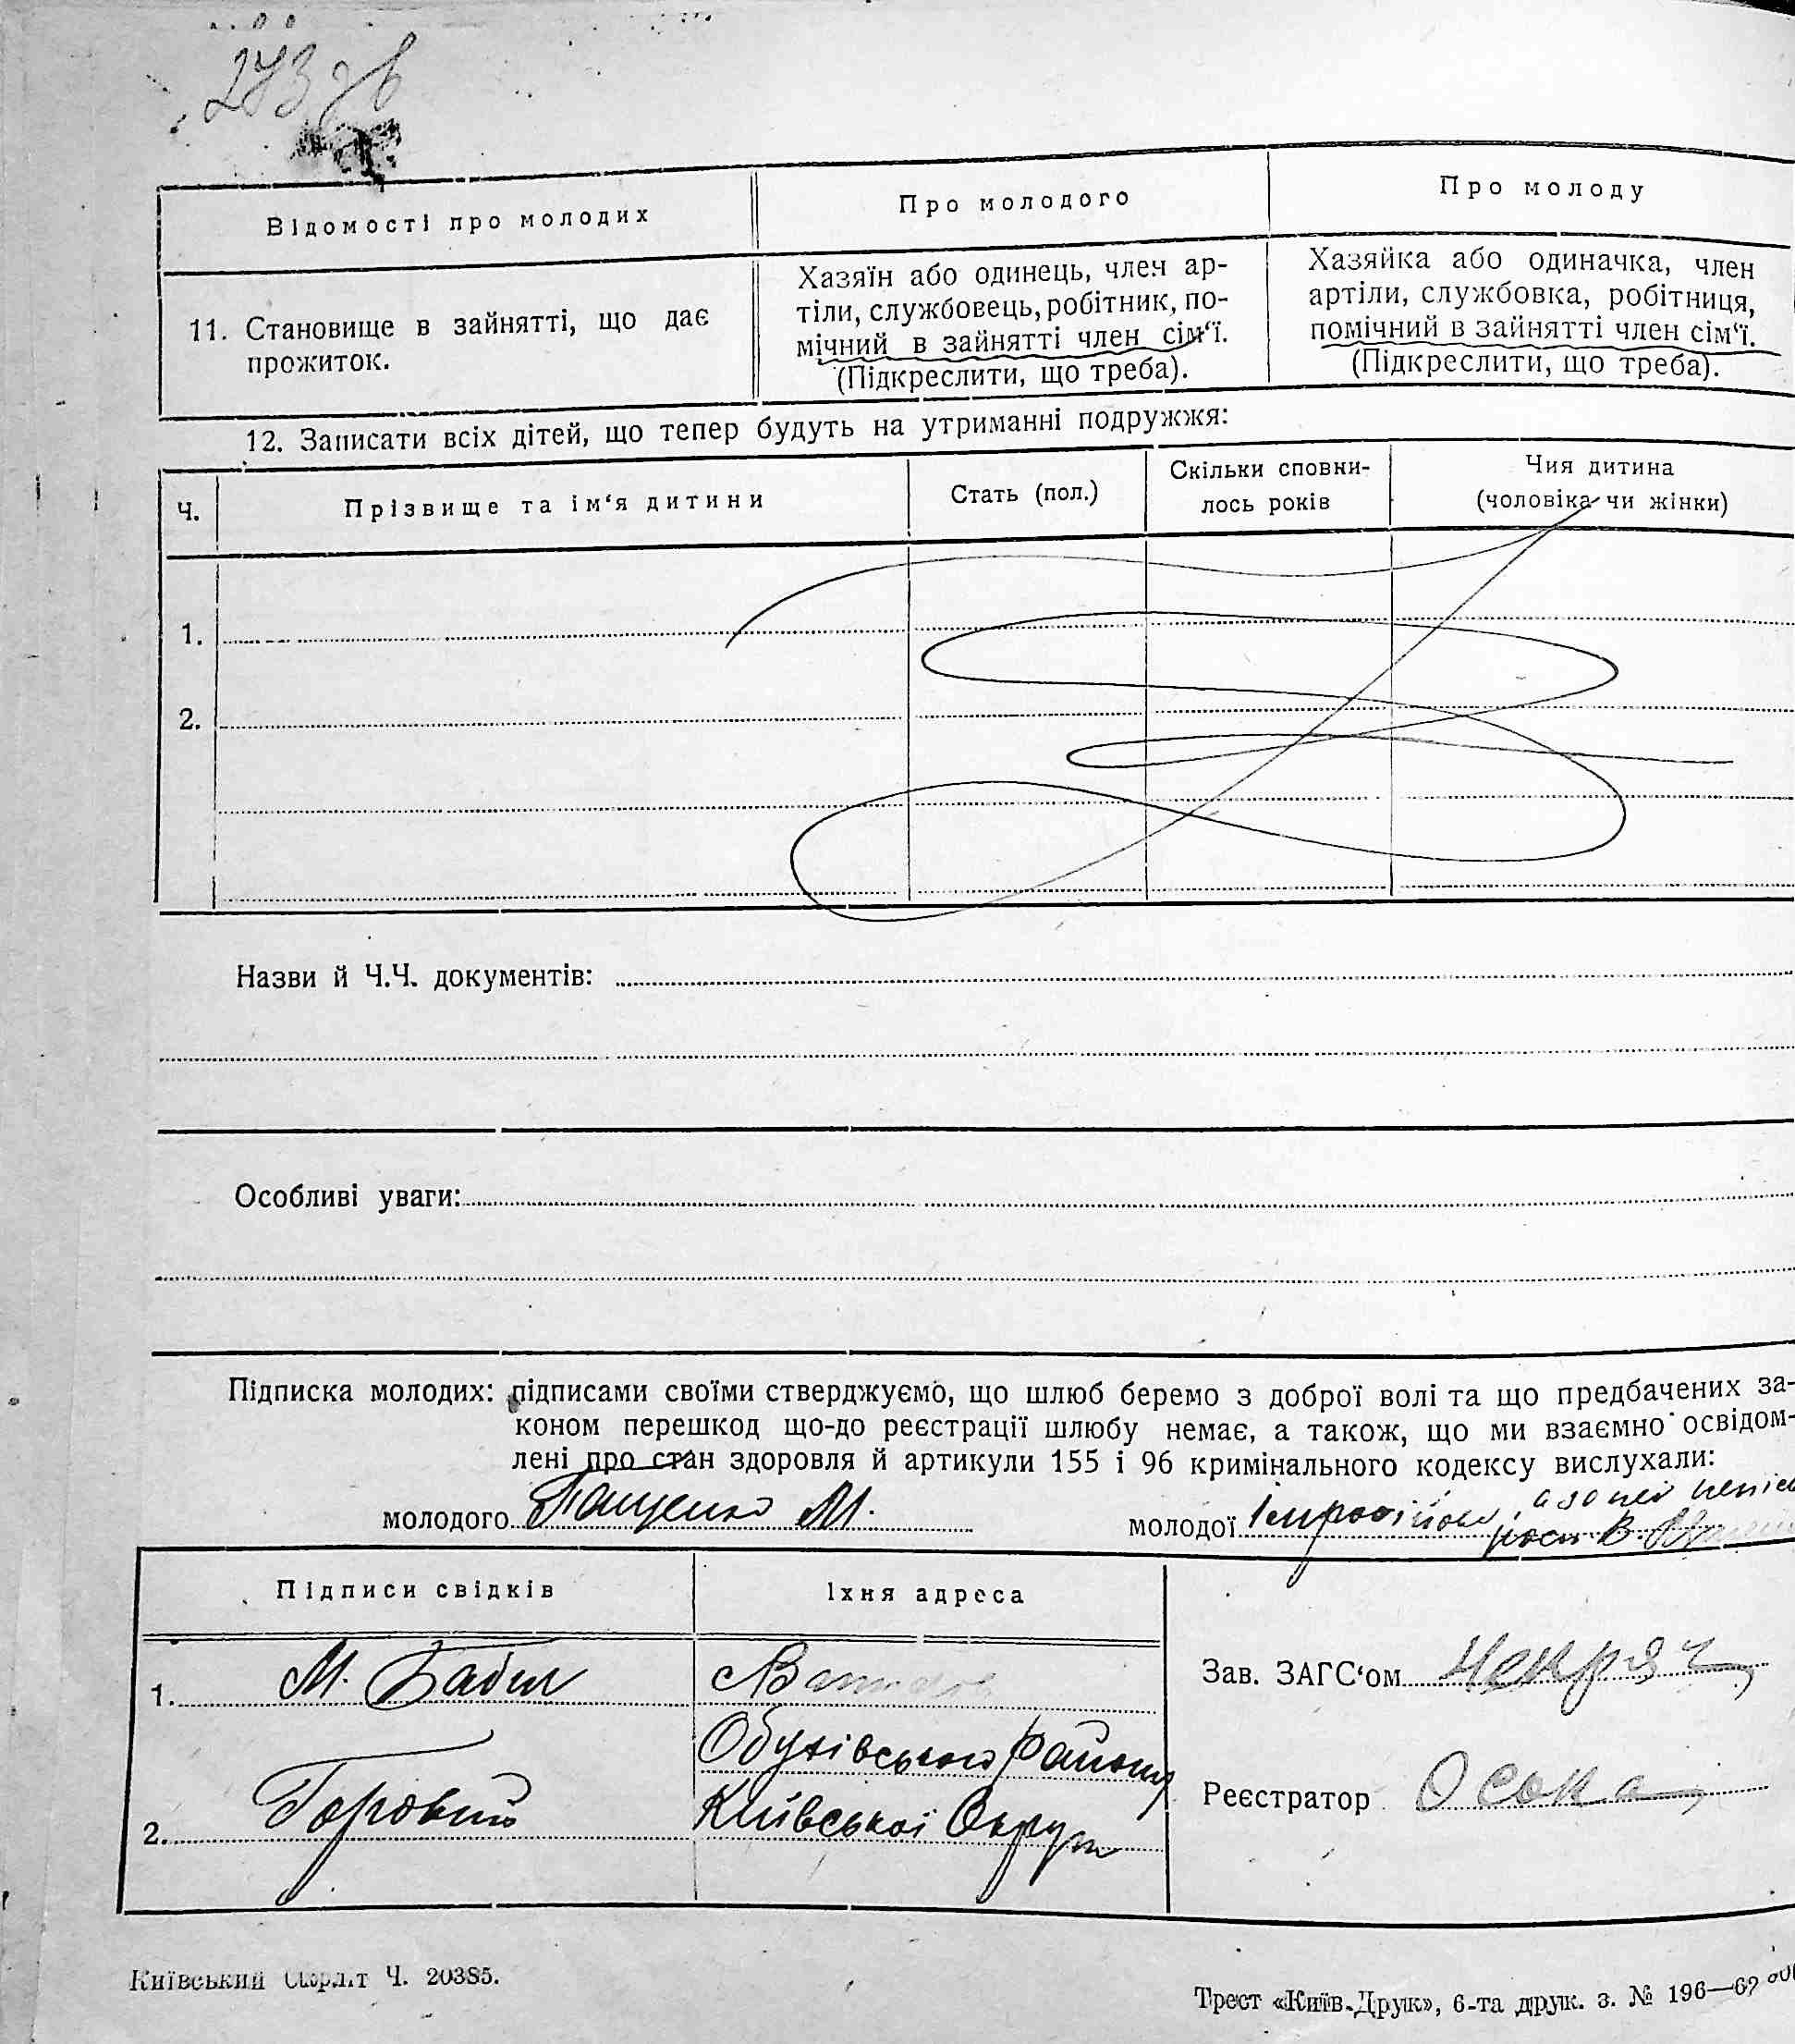 273 зв
Відомості про молодих
Про молодого
Про молоду
11. Становище в зайнятті, що дає
прожиток.
Хазяїн або одинець, член ар-
тіли, службовець, робітник, по-
мічний в зайнятті член сім‘ї.
(Підкреслити, що треба).
Хазяйка або одиначка, член
артіли, службовка, робітниця,
помічний в зайнятті член сім‘ї.
(Підкреслити, що треба).
12. Записати всіх дітей, що тепер будуть на утриманні подружжя:
Ч.
Прізвище та ім‘я дитини
Стать (пол.)
Скільки сповни-
лось років
Чия дитина
(чоловіка чи жінки)
1.
2.
Назви й Ч.Ч. документів:
Особливі уваги:
Підписка молодих: підписами своїми стверджуємо, що шлюб беремо з доброї волі та що предбачених за-
коном перешкод що-до реєстрації шлюбу немає, а також, що ми взаємно освідом-
лені про стан здоровля й артикули 155 і 96 кримінального кодексу вислухали:
молодого Пащенко М.
молодої а за неї
В.
Підписи свідків
Їхня адреса
1. М. Бабич
Обухівського Району
2. Горовий
Київської Округи
Зав. ЗАГС‘ом Некряч
Реєстратор Осока
Київський Окрліт Ч. 20385.
Трест «Київ-Друк», 6-та друк. з. № 196—